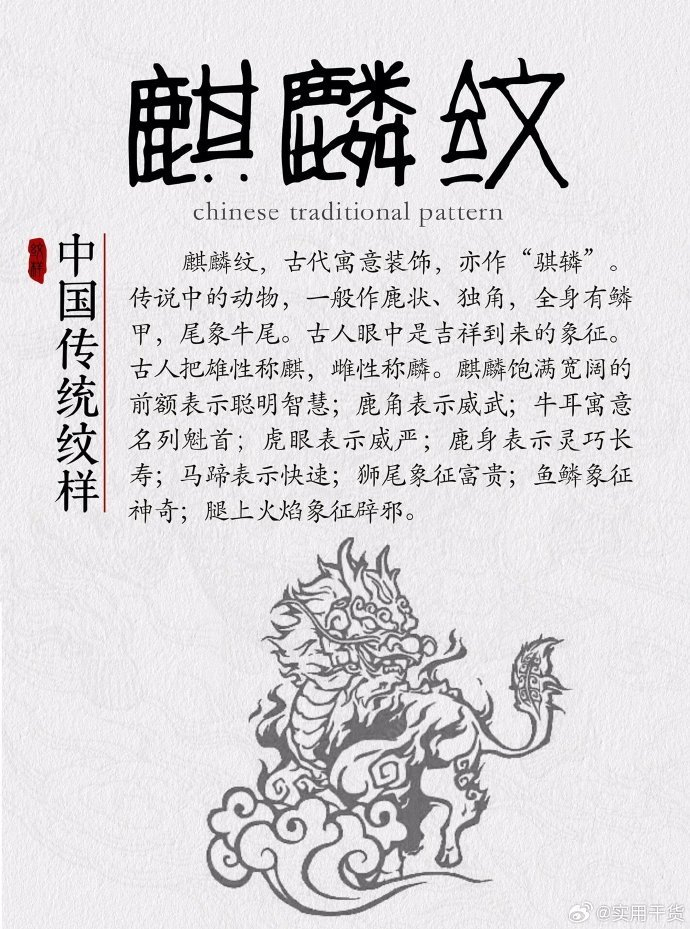 麒麟纹
chinese traditional pattern
纹样
中国传统纹样
麒麟纹，古代寓意装饰，亦作“骐辚”。
传说中的动物，一般作鹿状、独角，全身有鳞
甲，尾象牛尾。古人眼中是吉祥到来的象征。
古人把雄性称麒，雌性称麟。麒麟饱满宽阔的
前额表示聪明智慧；鹿角表示威武；牛耳寓意
名列魁首；虎眼表示威严；鹿身表示灵巧长
寿；马蹄表示快速；狮尾象征富贵；鱼鳞象征
神奇；腿上火焰象征辟邪。
@实用干货